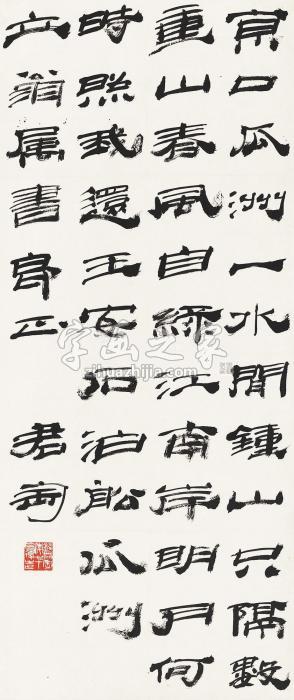 京口瓜洲一水間鍾山只隔數
重山春風自綠江南岸明月何
時照我還王安石泊舩瓜洲
立翁属書郢正 君匋
字画之家